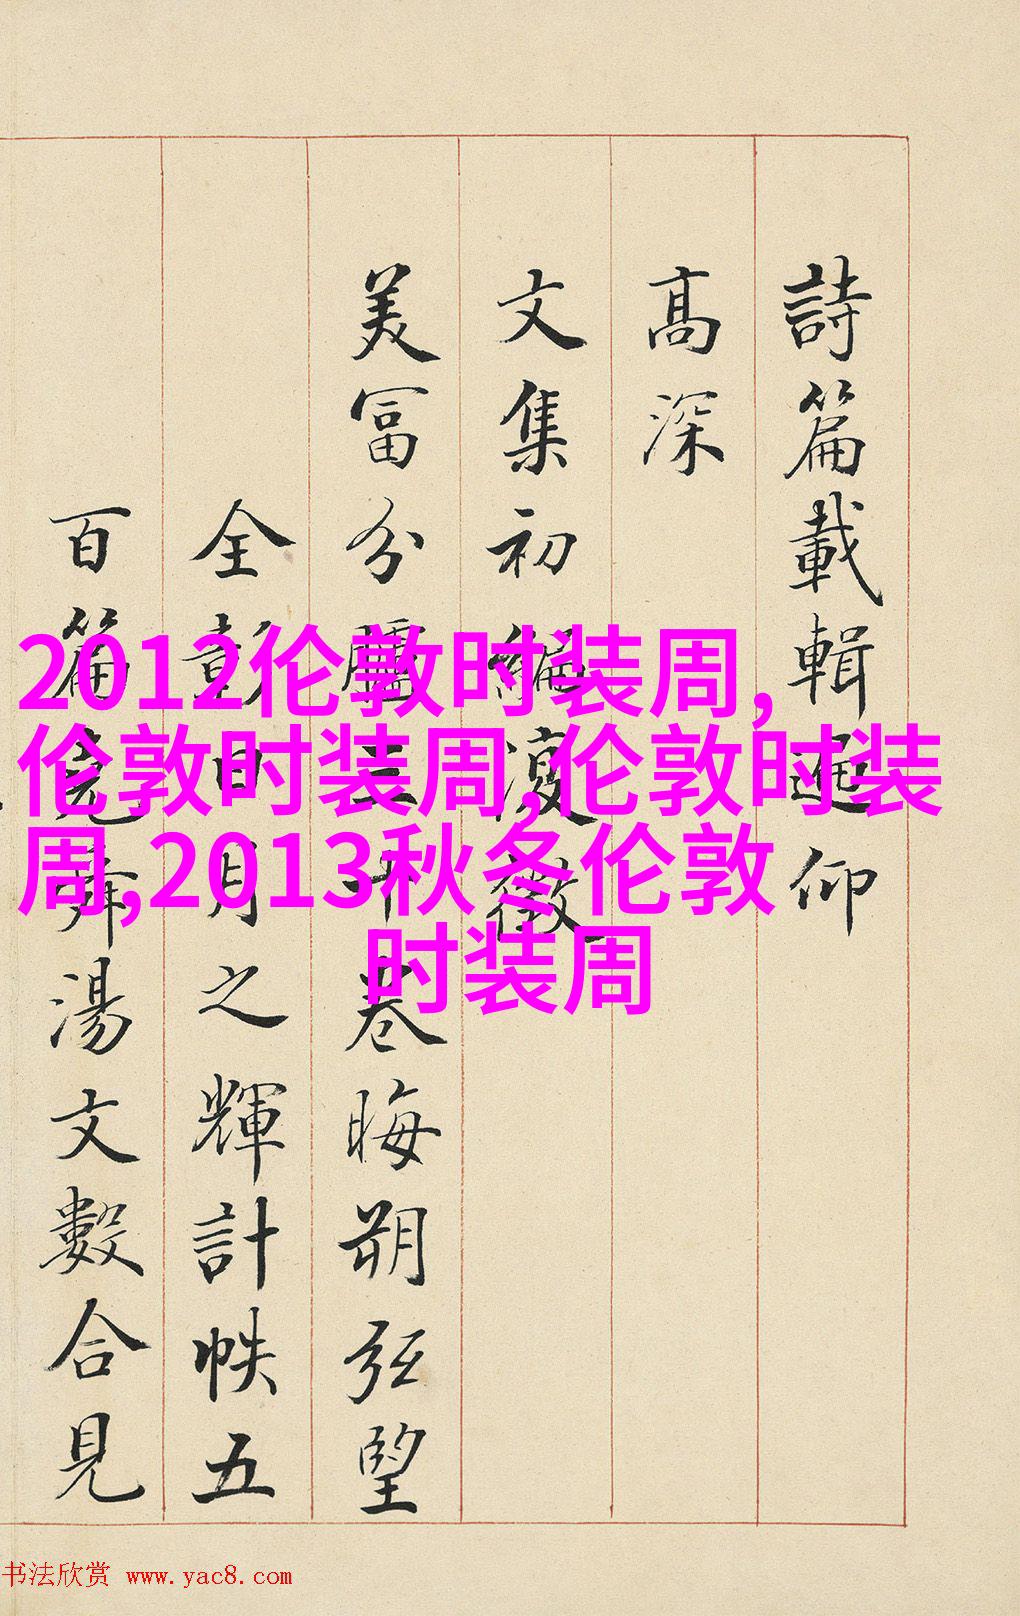 詩篇載輯遍仰
高深
文集初編復徵
美富分臚三十卷晦朔弦望
全彰日月之輝計帙五
百篇堯舜湯文數合見
2012伦敦时装周,
伦敦时装周,伦敦时装
周,2013秋冬伦敦
时装周
书法欣赏 www.yac8.com